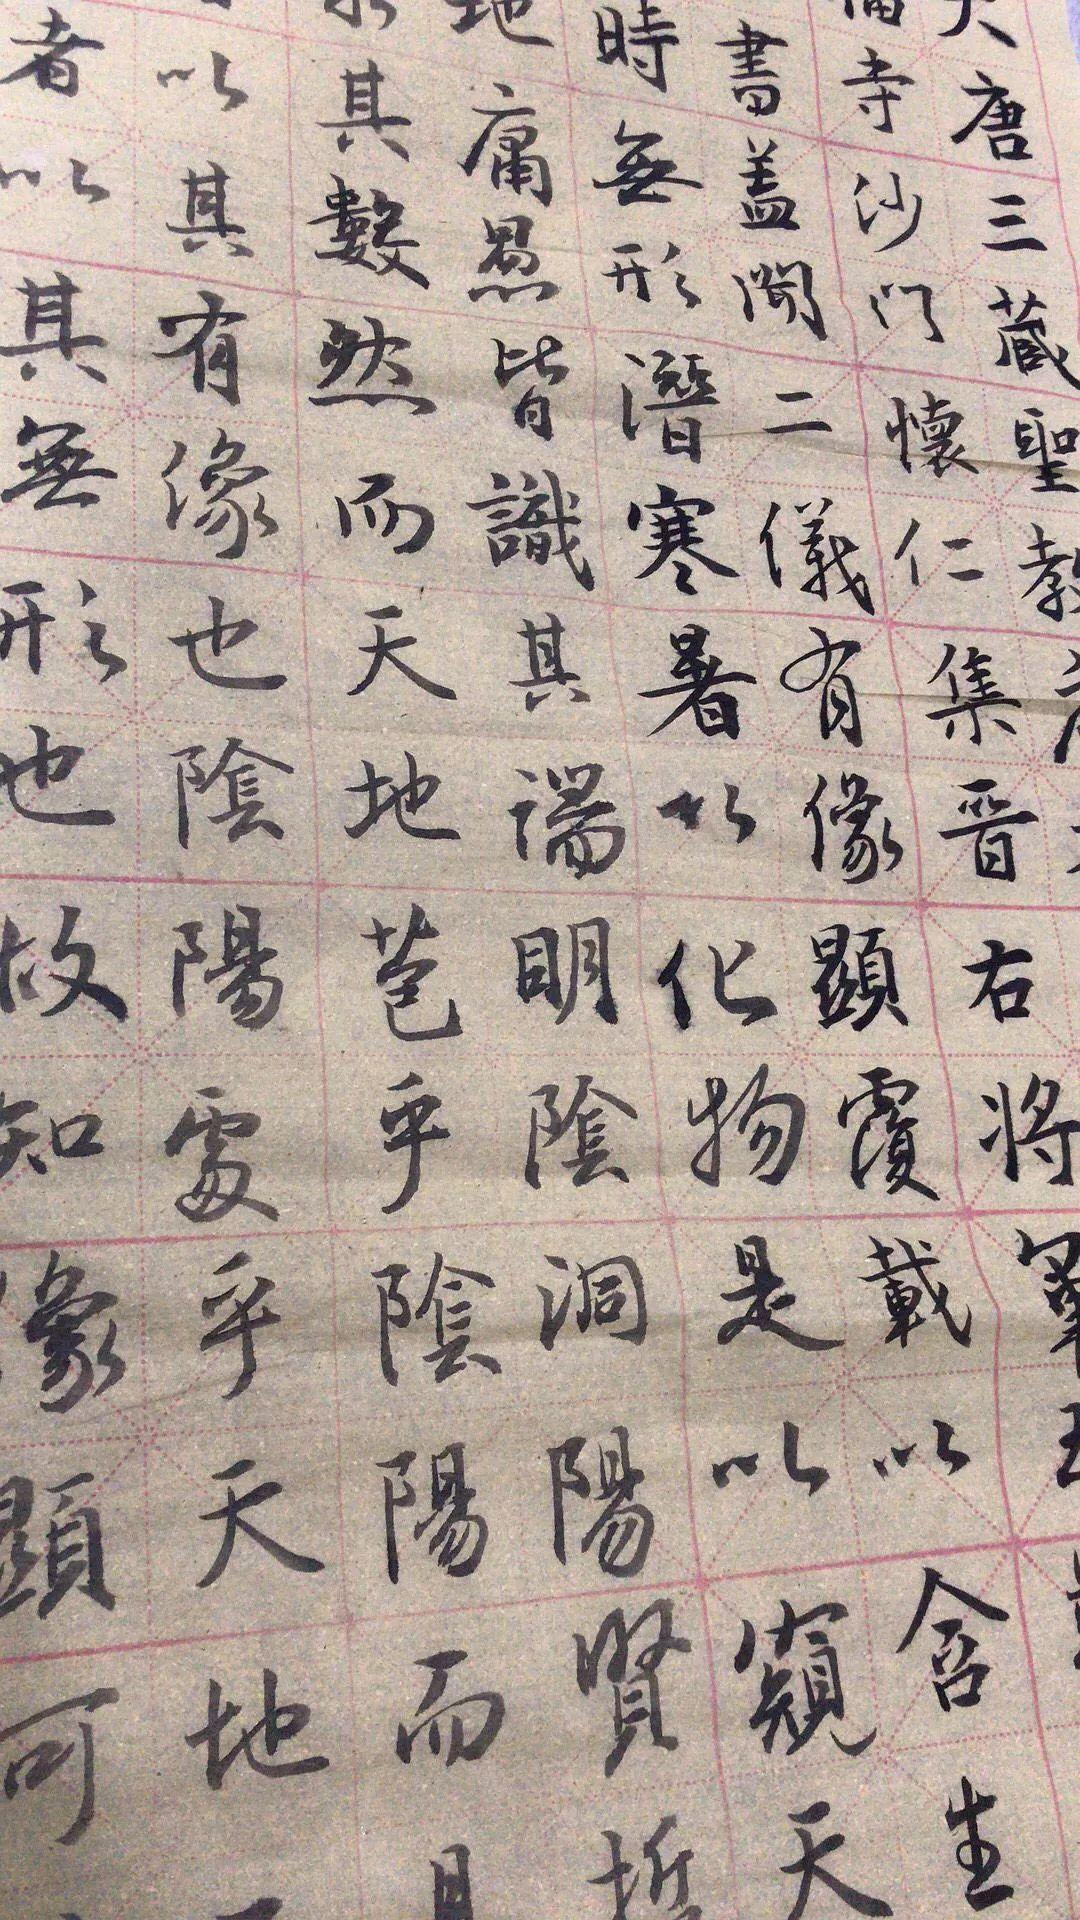 大唐三藏聖教
福寺沙門懷仁集晉右將軍
書盖聞二儀有像顯覆載以含生
時無形潛寒暑以化物是以窺天
地庸愚皆識其端明陰洞陽賢哲
其數然而天地苞乎陰陽而
以其有像也陰陽處乎天地
者以其無形也故知像顯可